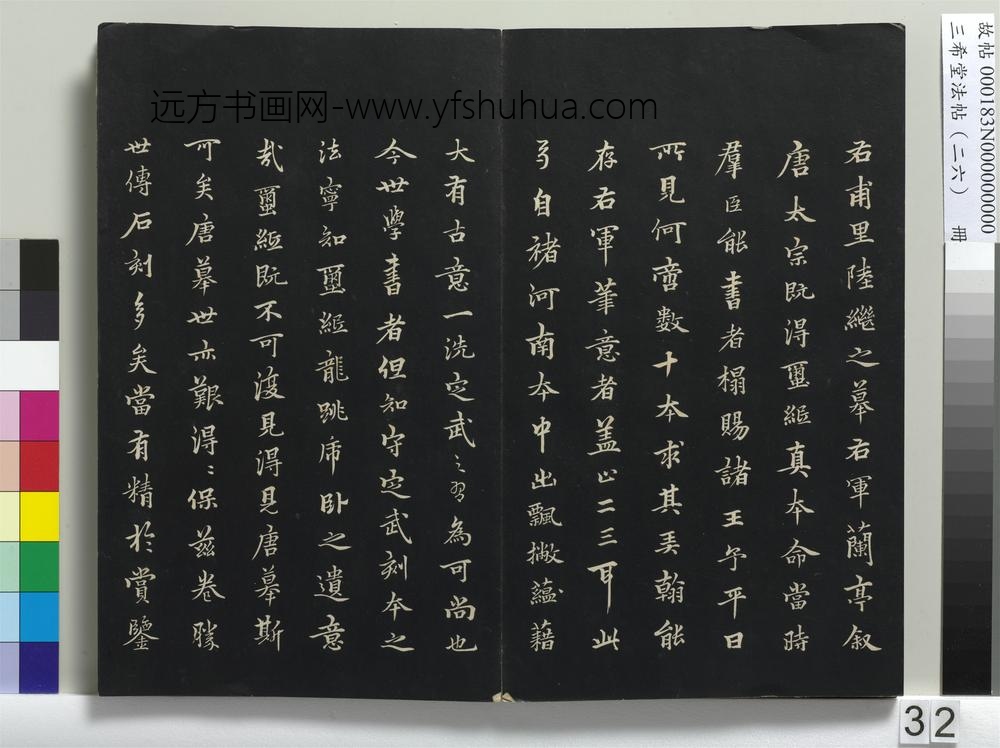 右甫里陸繼之摹右軍蘭亭叙
唐太宗既得璽紙真本命當時
羣臣能書者榻賜諸王予平日
所見何啻數十本求其弄翰能
存右軍筆意者蓋止二三耳此
弓自褚河南本中出飄撇蘊藉
大有古意一洗定武之習為可尚也
今世學書者但知守定武刻本之
法寧知璽紙龍跳虎卧之遺意
哉璽紙既不可復見得見唐摹斯
可矣唐摹世亦艱得得保兹卷勝
世傳石刻多矣當有精於賞鑒
远方书画网-www.yfshuhua.com
故帖 000183N000000000
三希堂法帖(二六) 冊
32